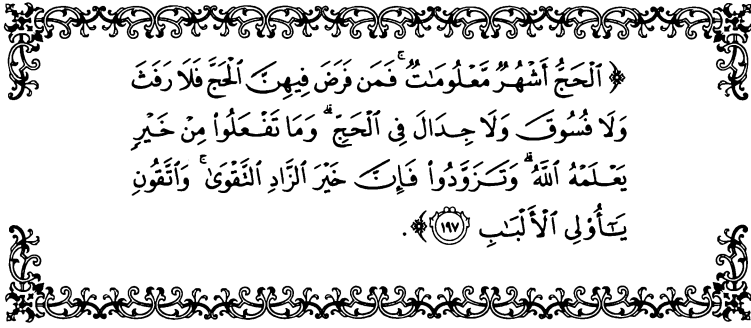 ﴿ ٱلۡحَجُّ أَشۡهُرٞ مَّعۡلُومَٰتٞۚ فَمَن فَرَضَ فِيهِنَّ ٱلۡحَجَّ فَلَا رَفَثَ
وَلَا فُسُوقَ وَلَا جِدَالَ فِي ٱلۡحَجِّۗ وَمَا تَفۡعَلُواْ مِنۡ خَيۡرٖ
يَعۡلَمۡهُ ٱللَّهُۗ وَتَزَوَّدُواْ فَإِنَّ خَيۡرَ ٱلزَّادِ ٱلتَّقۡوَىٰۚ وَٱتَّقُونِ
يَٰٓأُوْلِي ٱلۡأَلۡبَٰبِ ١٩٧ ﴾.